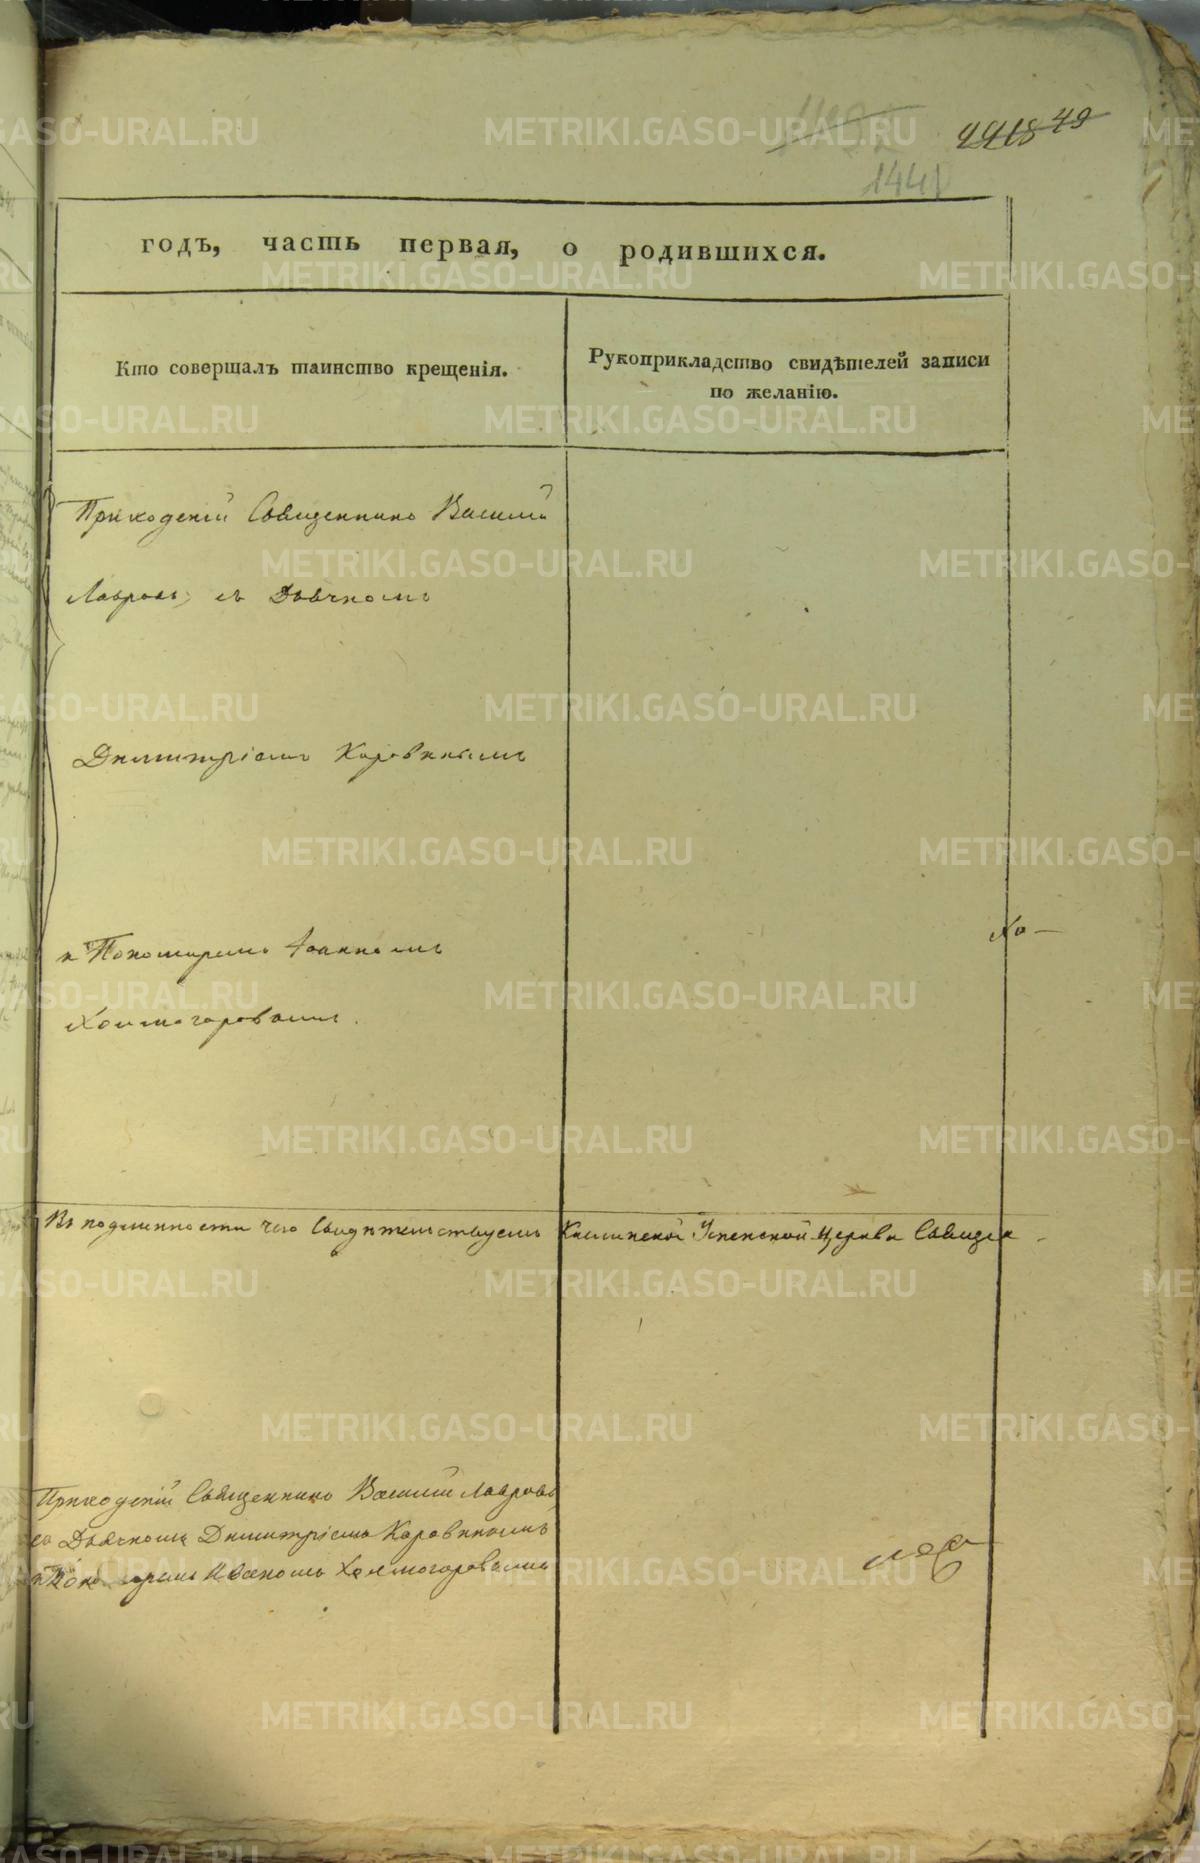 4418 49
1441
годъ, часть первая, о родившихся.
Кто совершалъ таинство крещенія.
Рукоприкладство свидѣтелей записи
по желанію.
Приходскій Священникъ Василій
Лавровъ, съ Дьячкомъ
Димитріемъ Коровинымъ
и Пономаремъ Іоанномъ
Холмогоровымъ.
Въ подлинности чего свидѣтельствуемъ Успенской Церкви Священ-
Приходскій Священникъ Василій Лавровъ
съ Дьячкомъ Димитріемъ Коровинымъ
и Пономаремъ Иваномъ Холмогоровымъ
METRIKI.GASO-URAL.RU